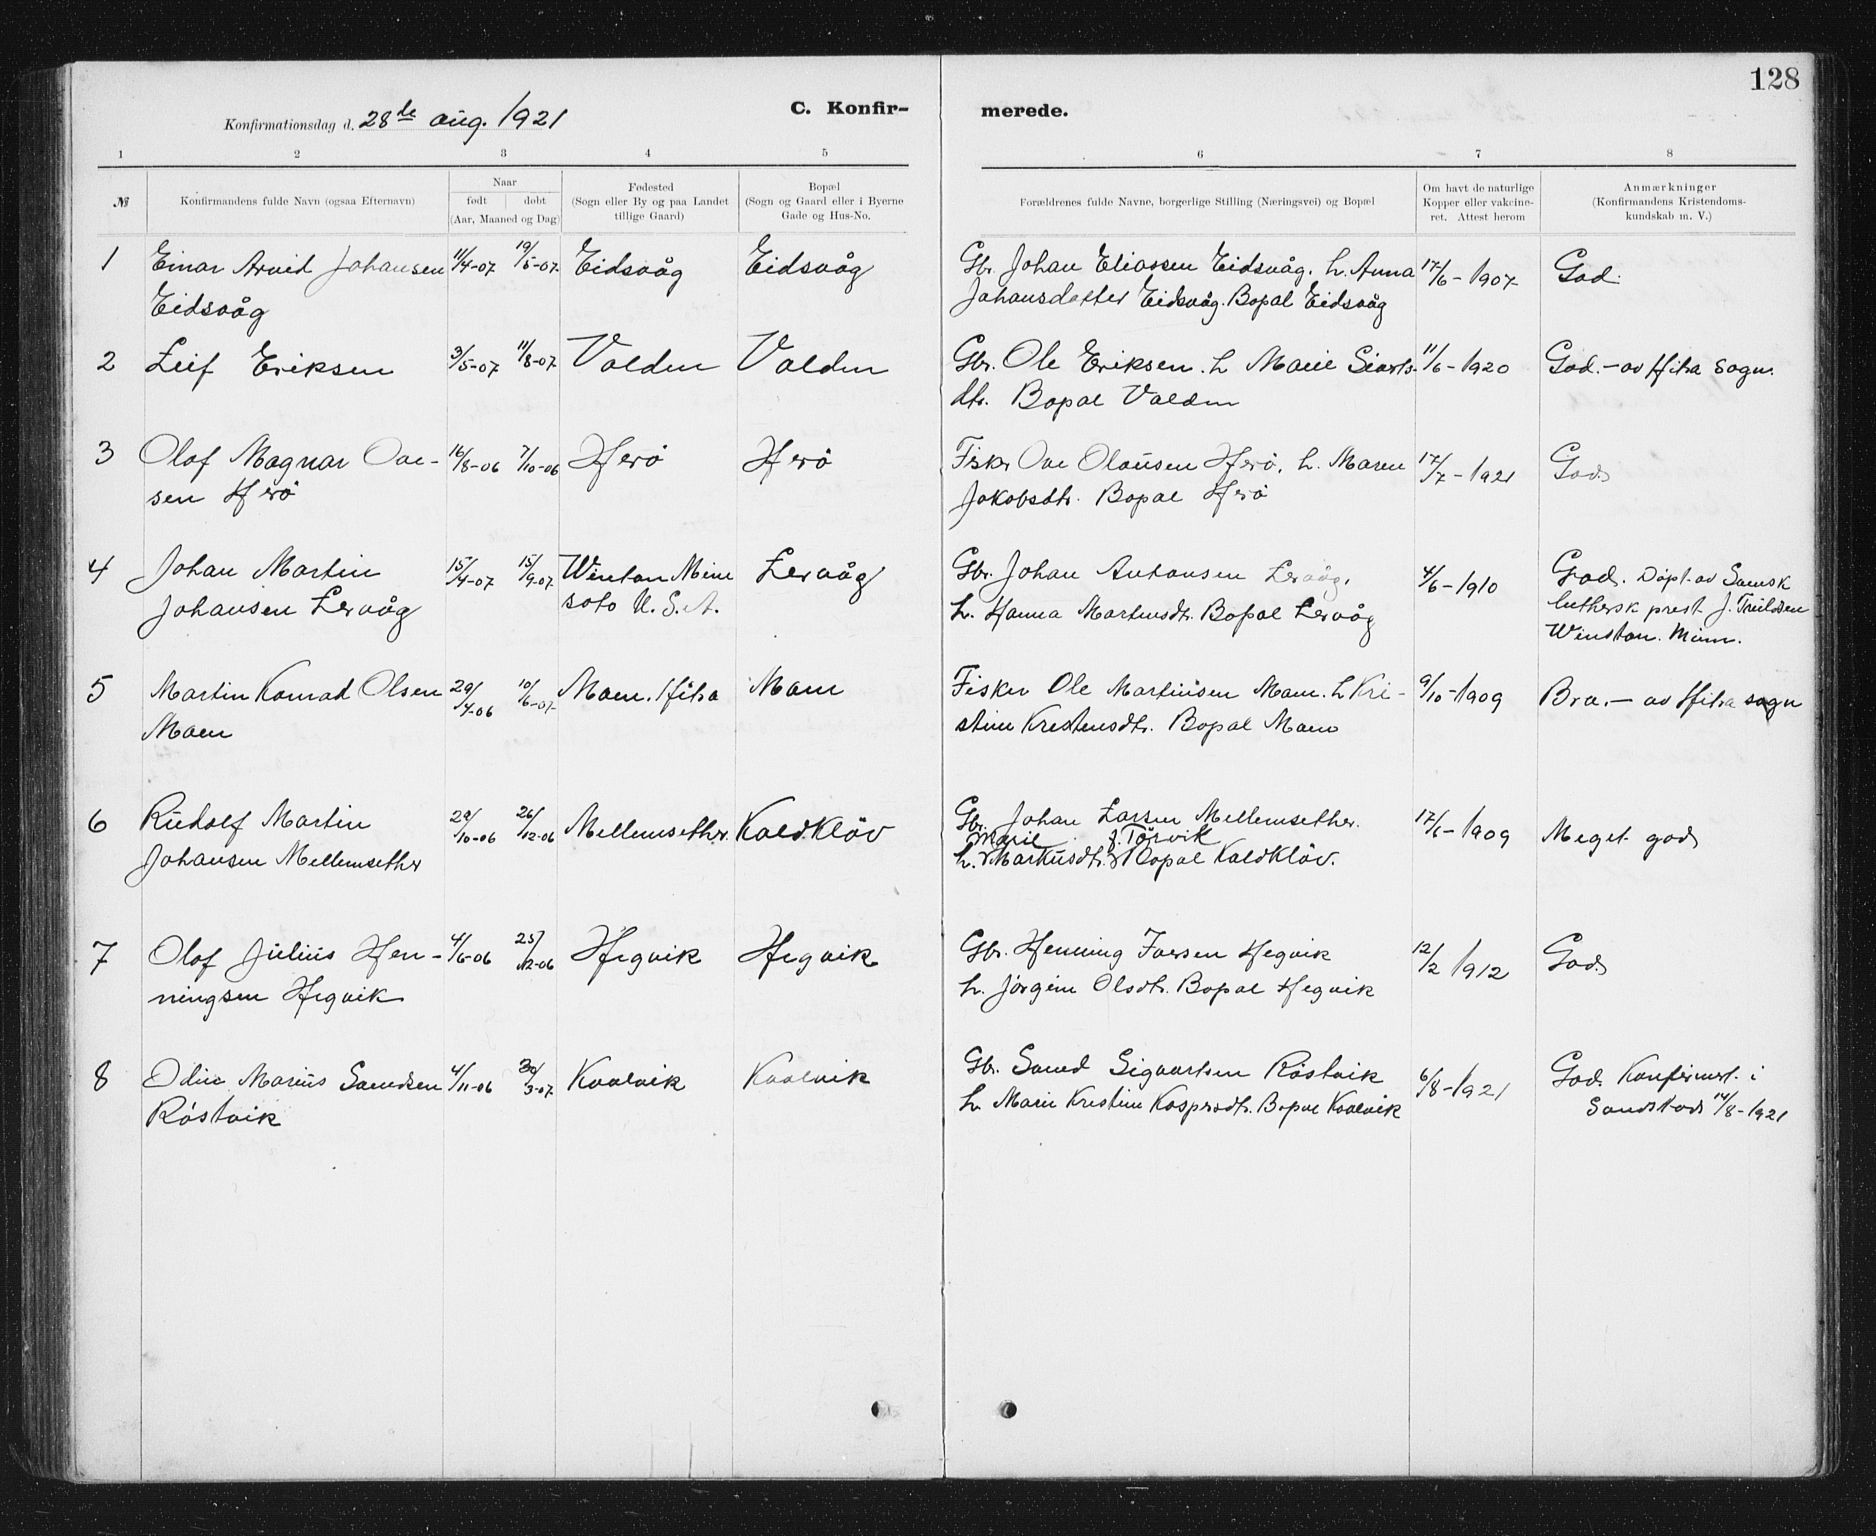 128
C. Konfir-
merede.
Konfirmationsdag d. 28de aug. 1921
1 2 3 4 5 6 7 8
№
Konfirmandens fulde Navn (ogsaa Efternavn)
Naar
født døbt
(Aar, Maaned og Dag)
Fødested
(Sogn eller By og paa Landet
tillige Gaard)
Bopæl
(Sogn og Gaard eller i Byerne
Gade og Hus-No.
Forældrenes fulde Navne, borgerlige Stilling (Næringsvei) og Bopæl
Om havt de naturlige
Kopper eller vakcine-
ret. Attest herom
Anmærkninger
(Konfirmandens Kristendoms-
kundskab m. V.)
1 Einar Arvid Johansen 11/4-07 19/5-07 Eidsvåg Eidsvåg Gbr. Johan Eliassen Eidsvåg. h. Anna 17/6-1907 God.
Eidsvåg Johansdatter Eidsvåg. Bopæl Eidsvåg
2 Leif Eriksen 3/5-07 11/8-07 Valden Valden Gbr. Ole Eriksen. h Marie Siverts- 11/6-1920 God. - av Hitra sogn.
dtr. Bopæl Valden
3 Olaf Magnar Ove- 16/8-06 7/10-06 Herö Herö Fisker Ove Olausen Herö. h. Maren 17/7-1921 God
sen Herö Jakobsdtr. Bopæl Herö
4 Johan Martin 15/4-07 15/9-07 Winston Mine Lervåg Gbr. Johan Antonsen Lervåg. 4/6-1910 God. Döpt av Samsk
Johansen Lervåg soto U.S.A. h. Hanna Martinsdtr. Bopæl Lervåg luthersk prest J.
Winston. Minn.
5 Martin Konrad Olsen 29/4-06 10/6-07 Maen. Hitra Maen Fisker Ole Martinusen Maen. h Kri- 9/10-1909 Bra. - av Hitra sogn
Maen stine Kristensdtr. Bopæl Maen
6 Rudolf Martin 29/10-06 26/12-06 Mellemsether. Kaldkløv Gbr. Johan Larsen Mellemsether. 17/6-1909 Meget god
Johansen Mellemsether Marie f. Tørvik
h. Markusdtr. Bopæl Kaldkløv.
7 Olaf Julius Hen- 4/6-06 25/12-06 Hegvik Hegvik Gbr. Henning Iversen Hegvik 12/2 1912 God
ningsen Hegvik h. Jörgine Olsdtr. Bopæl Hegvik
8 Odin Marius Samdsen 4/11-06 /3-07 Kvalvik Kvalvik Gbr. Samd Sigvartsen Röstvik 6/8-1921 God. Konfirmert i
Röstvik h Marie Kristine Kaspersdtr. Bopæl Kvalvik Sandstad 14/8-1921